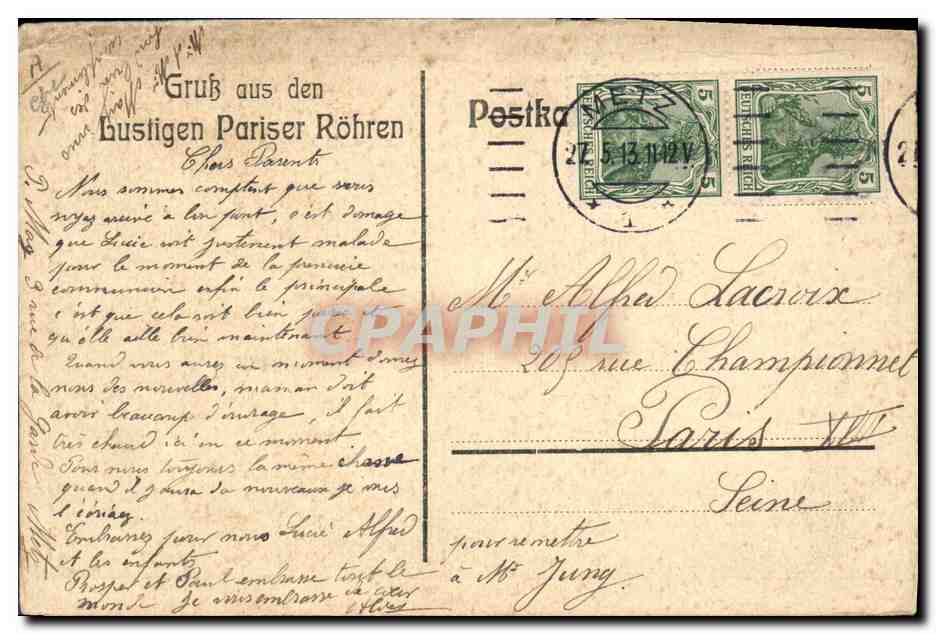 Gruß aus den
Lustigen Pariser Röhren
Postka
METZ
27. 5. 13. 11-12 V
1
5 5
DEUTSCHES REICH
5 5
DEUTSCHES REICH
Chers Parents
Nous sommes comptent que vous
soyez arrivé à bon port, c'est domage
que Lucie soit justement malade
pour le moment de la première
communion enfin le principale
c'est que cela soit bien passé et
qu'elle aille bien maintenant
Quand vous aurez un moment donnez
nous des nouvelles, maman doit
avoir beaucoup d'ouvrage, il fait
très chaud ici en ce moment.
Pour nous toujours la même chose
quand il y aura du nouveaux je vais
l'écrirez.
Embrassez pour nous Lucie Alfred
et les enfants
Prosper et Paul embrasse tout le
monde Je vous embrasse de cœur
P. May 9 rue de la Garde Metz
Mr Alfred Lacroix
205 rue Championnet
Paris XVIII
Seine
pour remettre
à Mr Jung
CPAPHIL